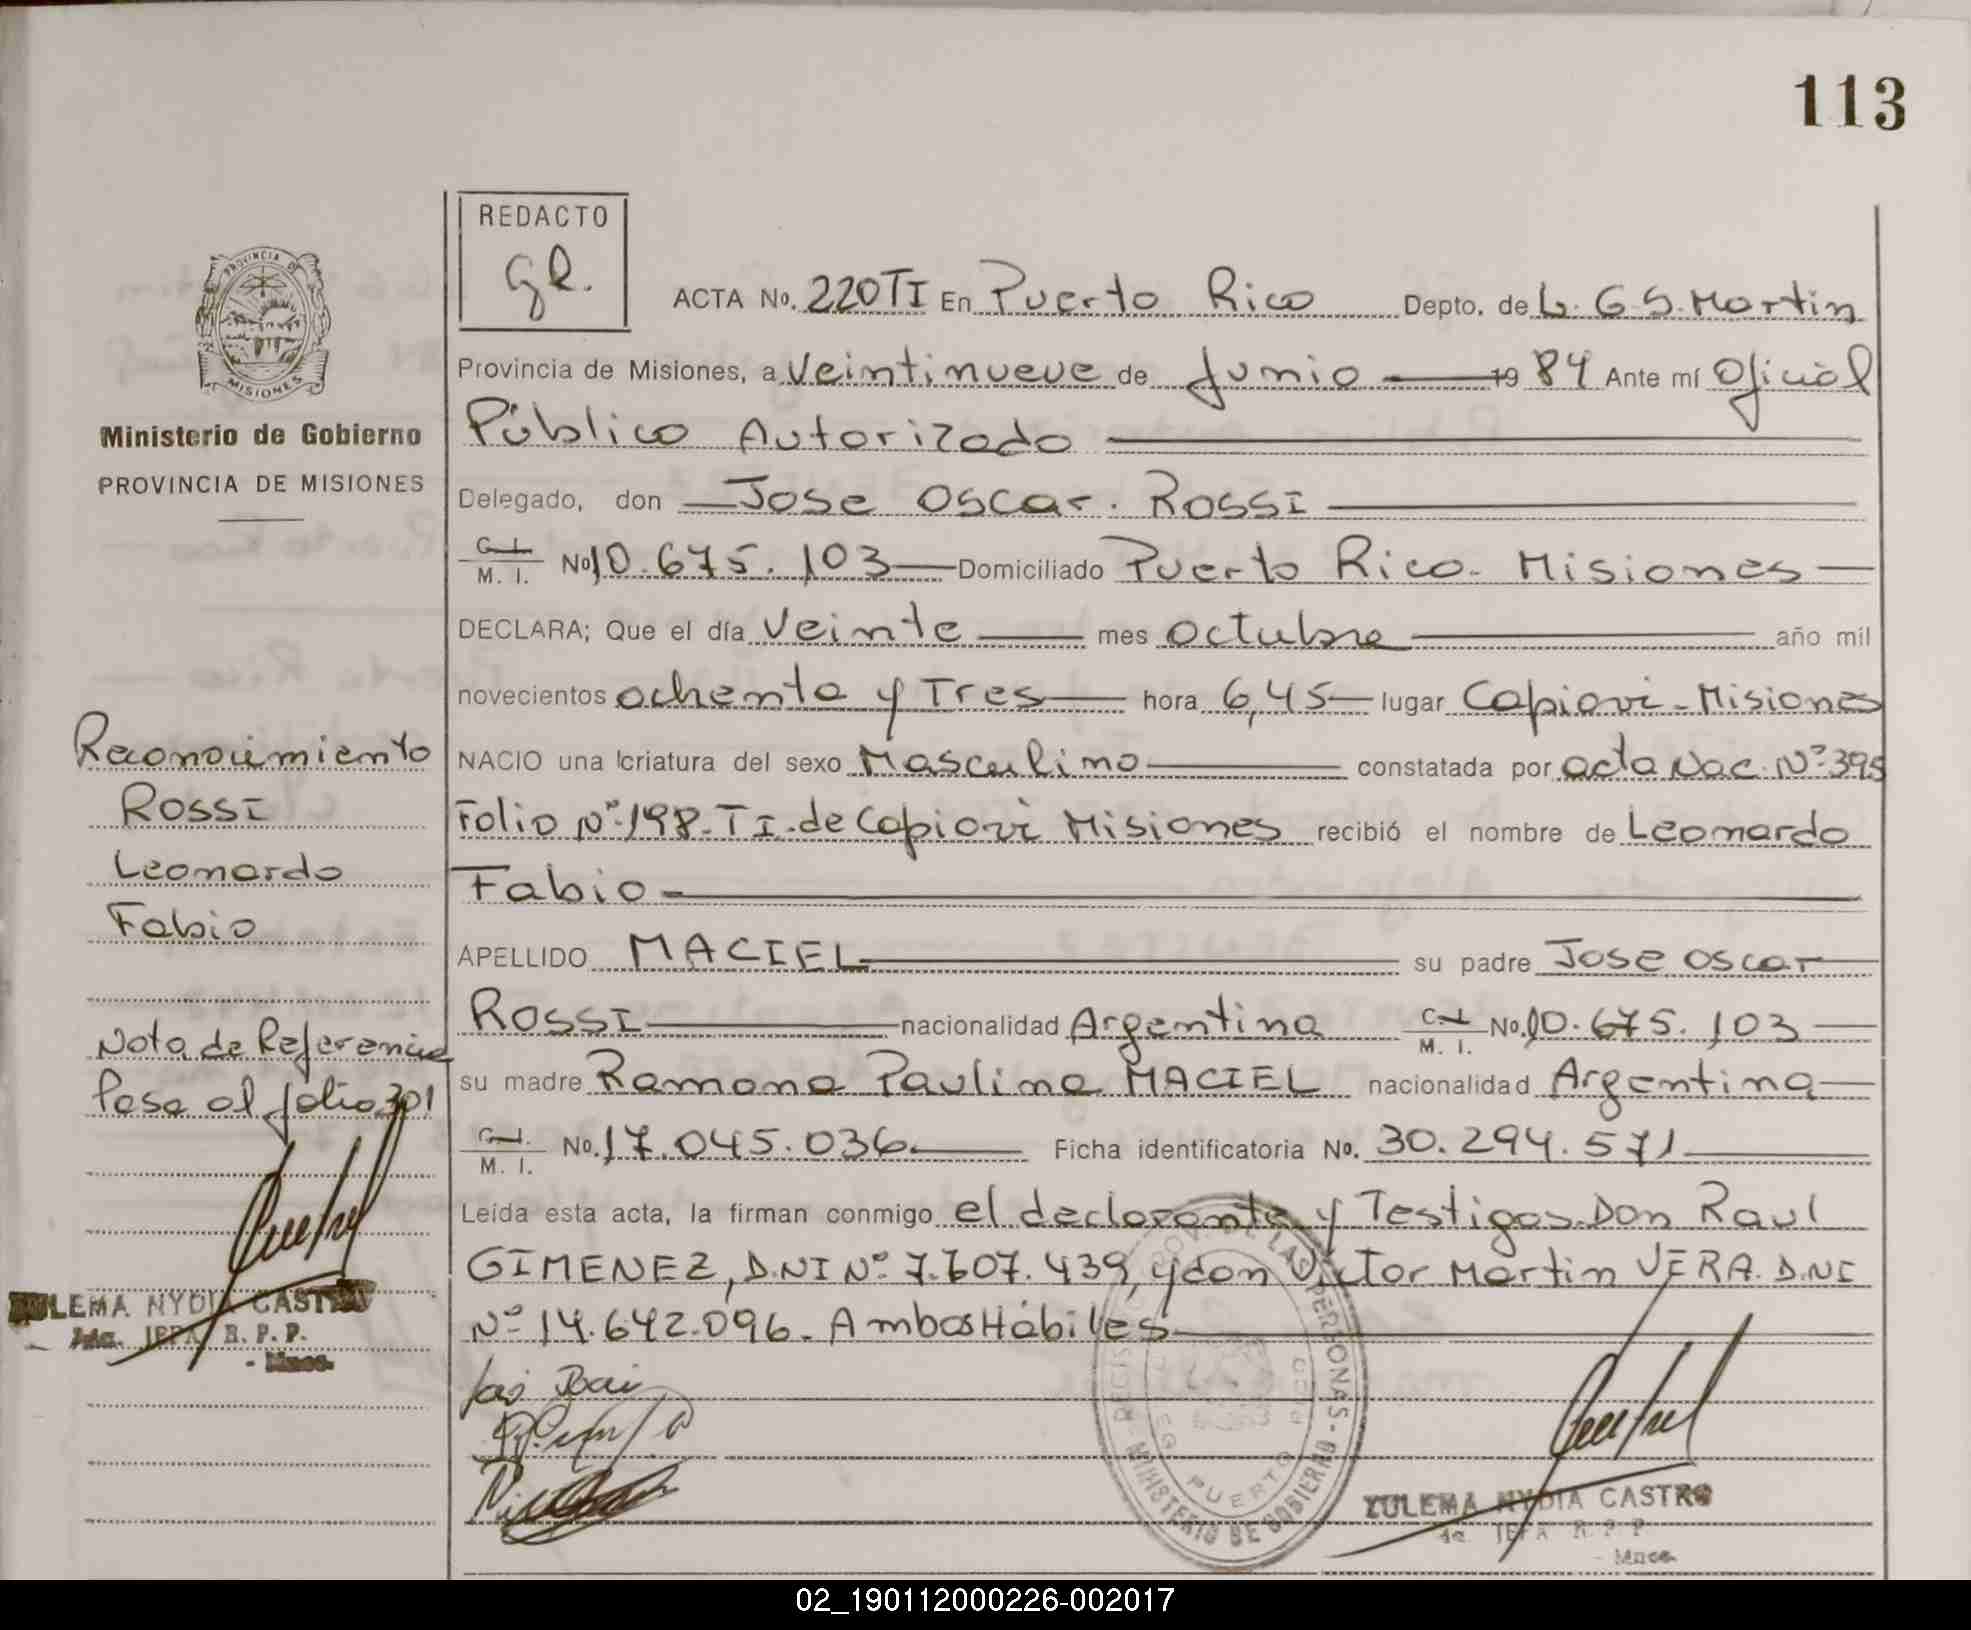 113
REDACTO
gR.
ACTA No. 220TI En Puerto Rico Depto. de L. G S. Martin
Provincia de Misiones, a Veintinueve de Junio 1984 Ante mí Oficial
Público Autorizado
Delegado, don Jose Oscar. ROSSI
C. I. M. I. No 10.675.103 Domiciliado Puerto Rico - Misiones
DECLARA; Que el día Veinte mes octubre año mil
novecientos ochenta y Tres hora 6,45 lugar Capiovi - Misiones
NACIO una criatura del sexo Masculino constatada por acta Nac. Nº 395
Folio Nº 198-TI. de Capiovi Misiones recibió el nombre de Leonardo
Fabio
APELLIDO MACIEL su padre Jose Oscar
ROSSI nacionalidad Argentina C. I. M. I. No. 10.675.103
su madre Ramona Paulina MACIEL nacionalidad Argentina
C. I. M. I. No. 17.045.036 Ficha identificatoria No. 30.294.571
Leída esta acta, la firman conmigo el declarante y Testigos Don Raul
GIMENEZ, D.NI Nº 7.607.439, y don Victor Martin VERA. D.NI
Nº 14.642.096. Ambos Hábiles
PROVINCIA DE
MISIONES
Ministerio de Gobierno
PROVINCIA DE MISIONES
Reconocimiento
ROSSI
Leonardo
Fabio
Nota de Referencia
Pasa al folio 301
ZULEMA NYDIA CASTRO
JEFA R. P. P.
- Mnes.
DE LAS PERSONAS - MINISTERIO DE GOBIERNO
PUERTO
ZULEMA NYDIA CASTRO
JEFA R P P
- Mnes.
02_190112000226-002017